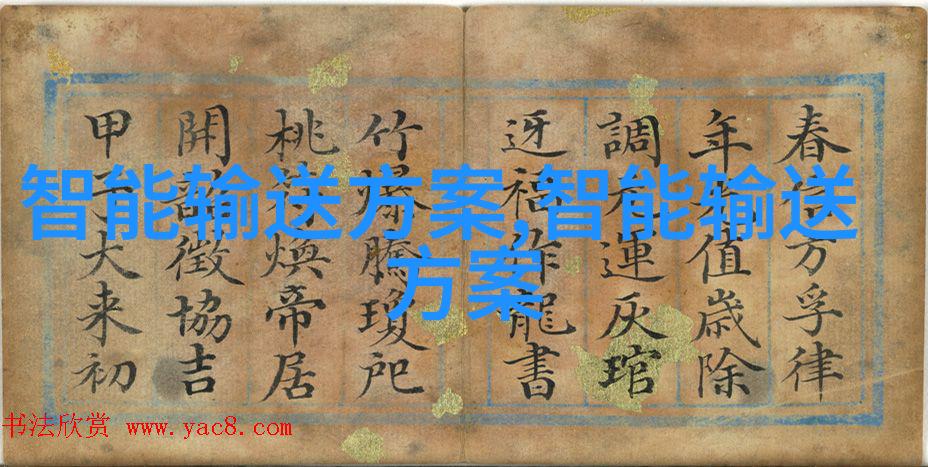 智能输送方案,智能输送
方案
春方孚律
年值歲除
調元連灰琯
迓作龍書
竹爆騰瓊
桃符煥帝居
開韶徵協吉
甲子大来初
书法欣赏 www.yac8.com